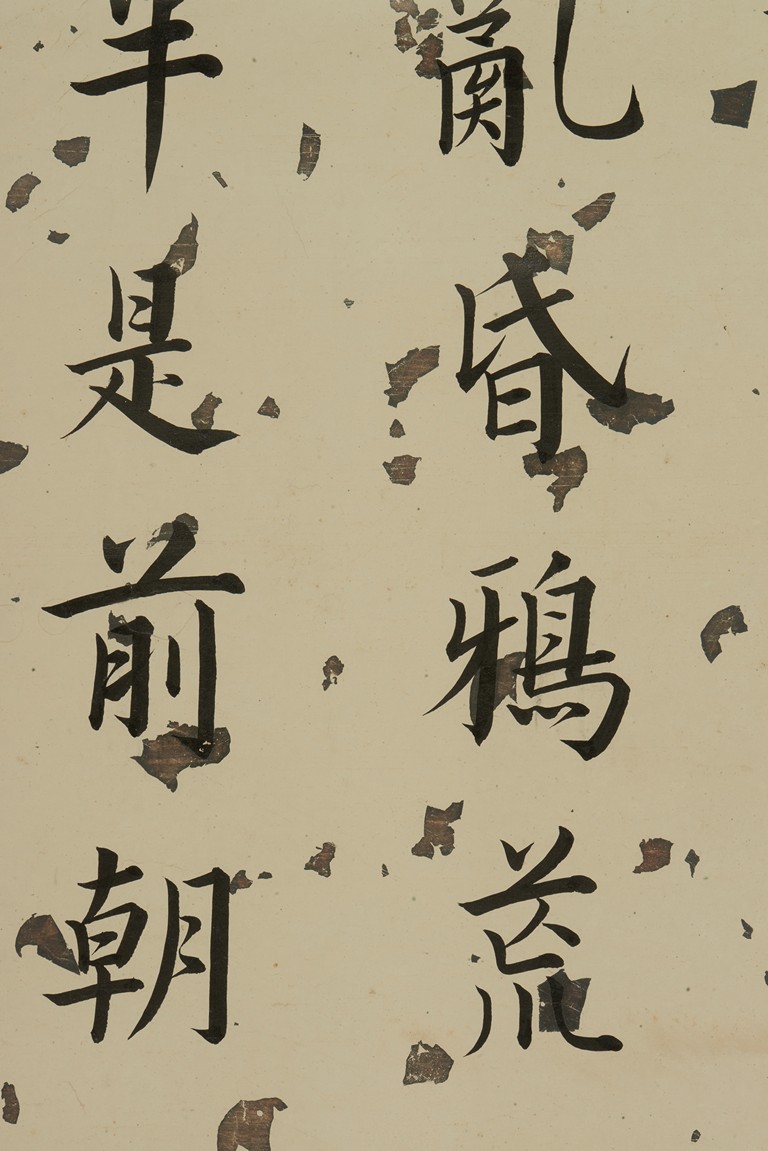 亂昏鴉荒
半是前朝